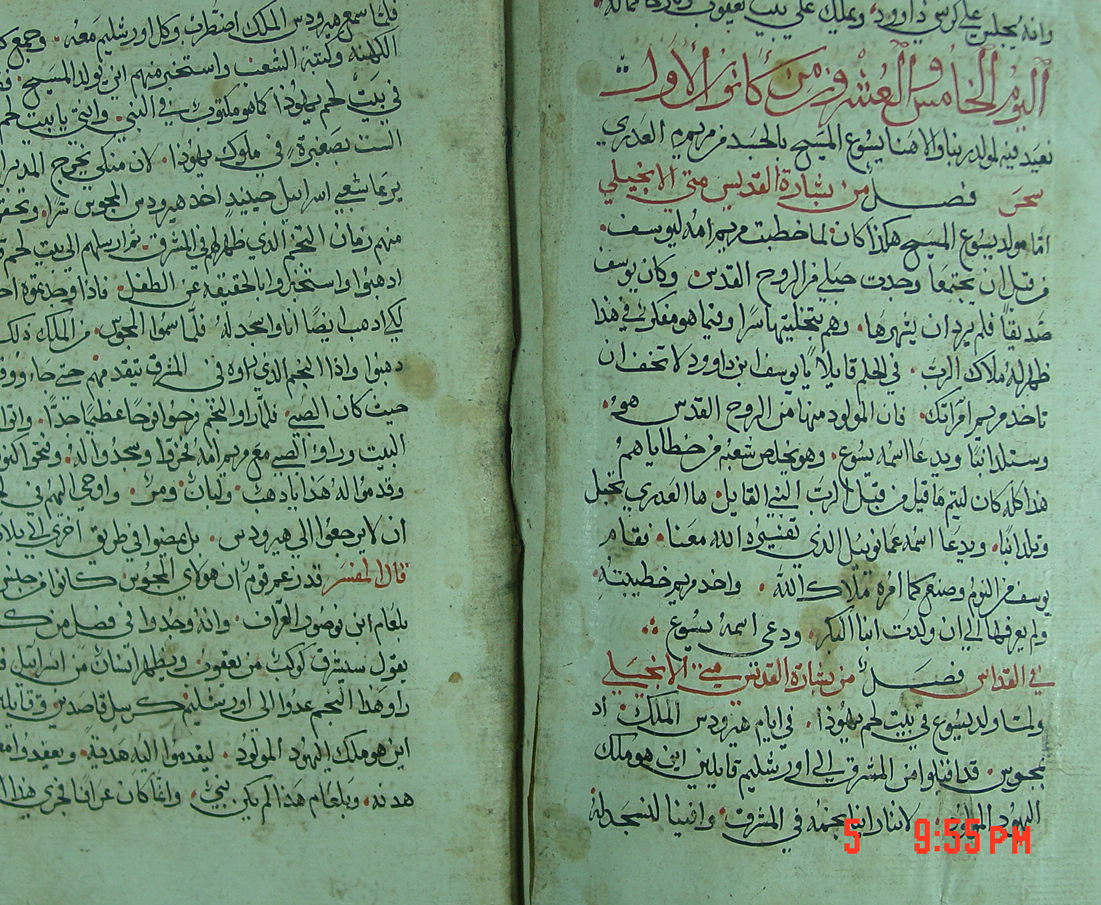 وانه يجلس على كرسي داوود ويملك على بيت يعقوب
اليوم الخامس والعشرون من كانون الاول
نعيد فيه لمولد ربنا والاهنا يسوع المسيح بالجسد من مريم العدري
سحر فصل من بشارة القديس متى الانجيلي
امّا مولد يسوع المسيح هكذا كان لما خطبت مريم امه ليوسف
من قبل ان يجتمعا وجدت حبلى من الروح القدس وكان يوسف
صديقاً فلم يرد ان يشهرها وهم بتخليتها سراً وفيما هو مفكر في هذا
ظهر له ملاك الرب في الحلم قايلاً يا يوسف بن داوود لا تخف ان
تاخد مريم امراتك فان المولود منها من الروح القدس هو
وستلد ابنًا ويدعا اسمه يسوع وهو يخلص شعبه من خطاياهم
هذا كله كان ليتم ما قيل من قبل الرب النبي القايل ها العدري تحبل
وتلد ابنًا ويدعا اسمه عمانوييل الذي تفسيره الله معنا فقام
يوسف من النوم وصنع كما امره ملاك الله واخد مريم خطيبته
ولم يعرفها الى ان ولدت ابنها البكر ودعي اسمه يسوع
في القداس فصل من بشارة القديس متى الانجيلي
ولما ولد يسوع في بيت لحم يهودا في ايام هيرودس الملك اد
مجوس قد اقبلوا من المشرق الى اورشليم قايلين اين هو ملك
اليهود المولود لاننا راينا نجمه في المشرق وافينا لنسجد له
فلما سمع هيرودس الملك اضطرب وكل اورشليم معه وجمع
الكهنة وكتبة الشعب واستخبر منهم اين يولد المسيح
في بيت لحم يهودا كما هو مكتوب في النبي وانتي يا بيت لحم
الست بصغيرة في ملوك يهودا لان منكي يخرج المدبر
يرعا شعبي اسراييل حينيدٍ اخد هيرودس المجوس سراً وتحقق
منهم زمان النجم الذي ظهر لهم في المشرق ثم ارسلهم الى بيت لحم
ادهبوا واستخبروا بالحقيقه عن الطفل فادا وجدتموه
لكي ادهب ايضًا انا واسجد له فلما سمعوا المجوس من الملك ذلك
دهبوا وادا النجم الذي راوه في المشرق يتقدمهم حتى جاء ووقف
حيث كان الصبي فلما راوا النجم فرحوا فرحًا عظيمًا جدًا
البيت وراوا الصبي مع مريم امه فخروا وسجدوا له وفتحوا
وقدموا له هدايا دهب ولبان ومر واوحي اليهم في
ان لا يرجعوا الى هيرودس بل مضوا في طريق اخرى الى
قال المفسر قد زعم قوم ان هولاي المجوس كانوا من جنس
بلعام ابن فصور العراف وانه وجدوا في فصل من
يقول سيشرق كوكب من يعقوب ويظهر انسان من اسراييل
راو هذا النجم عدوا الى اورشليم كرسل قاصدين
اين هو ملك اليهود المولود ليقدموا اليه هدية
هدنه وبلعام هذا لم يكن نبي وانما كان عرافًا
5 9:55 PM